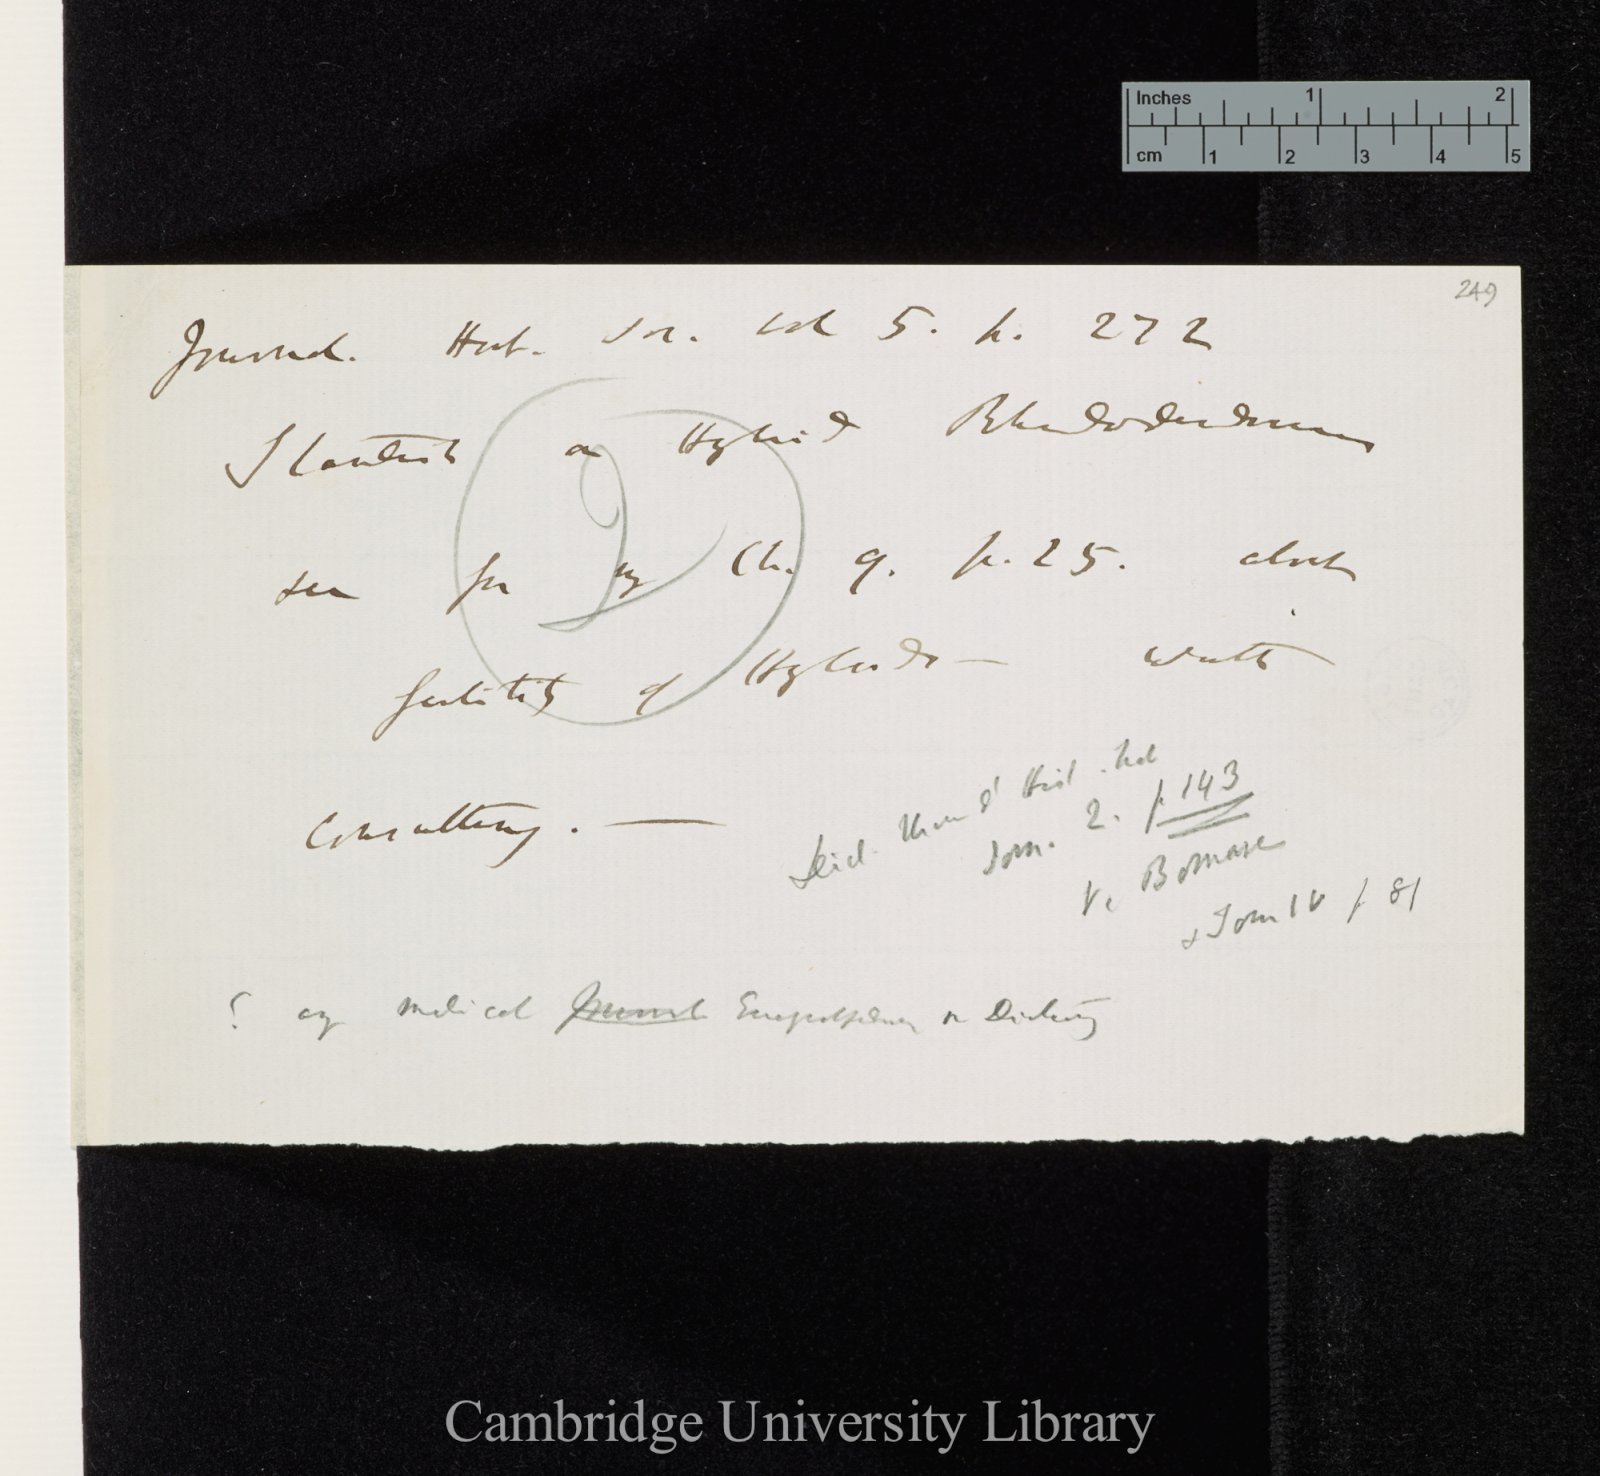 Inches 1 2
cm 1 2 3 4 5
249
Journal. Hort. Soc. vol 5. p. 272
Standish on Hybrid Rhododendrons
seen for my Ch. 9. p. 25. about
2
fertility of Hybrids — worth
consulting. —
Dict. d'Hist. Nat
Tom. 2. p. 143
V. Bomare
& Tom IV p 81
? any medical Journal Encyclopedia or Dictionary
Cambridge University Library